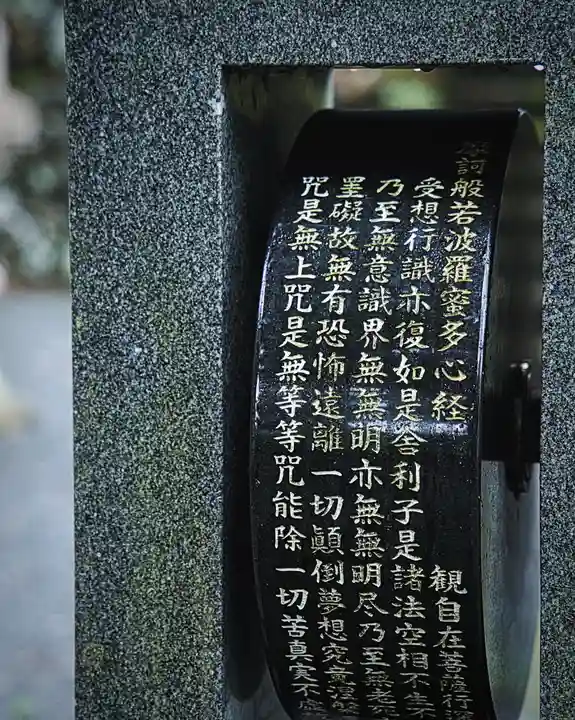 摩訶般若波羅蜜多心経 観自在菩薩行
受想行識亦復如是舎利子是諸法空相不生
乃至無意識界無無明亦無無明尽乃至無老
罣礙故無有恐怖遠離一切顛倒夢想究竟涅槃
咒是無上咒是無等等咒能除一切苦真実不虚